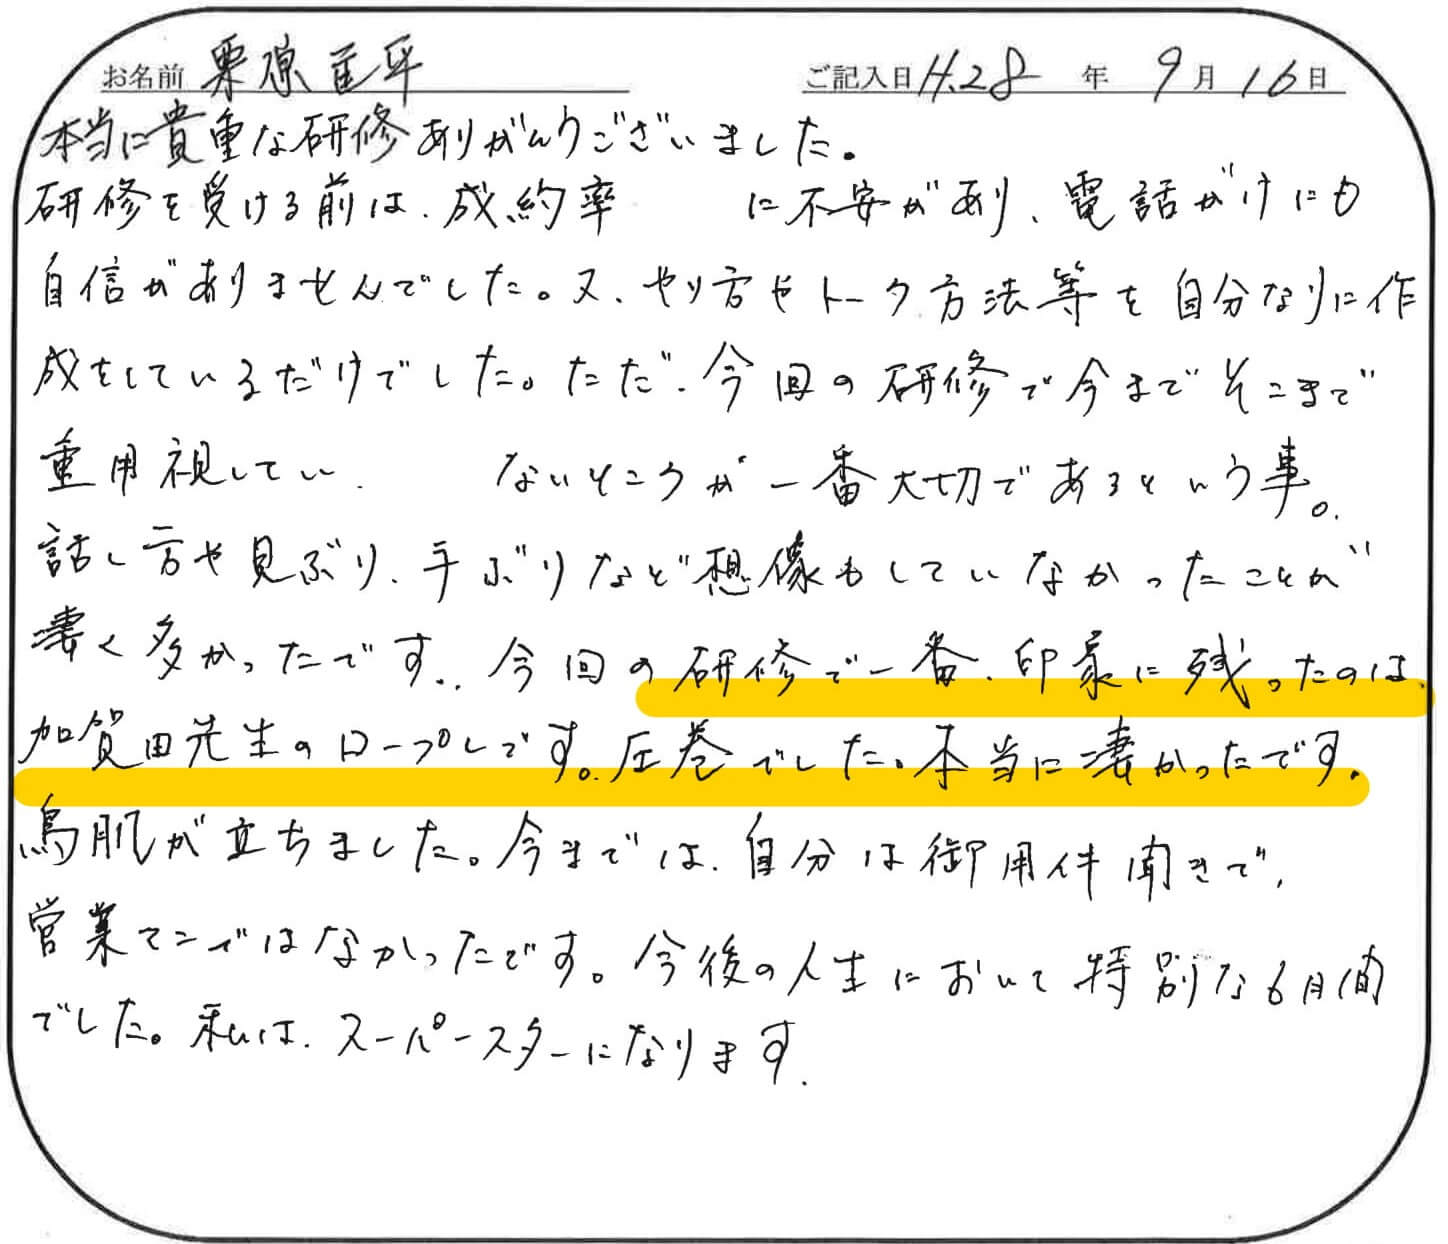 お名前 栗原 ご記入日 H.28 年 9月16日
本当に貴重な研修ありがとうございました。
研修を受ける前は、成約率 に不安があり、電話がけにも
自信がありませんでした。又、やり方やトーク方法等を自分なりに作
成をしているだけでした。ただ、今回の研修で今までそこまで
重用視してい ないところが一番大切であるという事。
話し方や見ぶり、手ぶりなど想像もしていなかったことが
凄く多かったです。今回の研修で一番、印象に残ったのは、
加賀田先生のロープレです。圧巻でした。本当に凄かったです。
鳥肌が立ちました。今までは、自分は御用件聞きで、
営業マンではなかったです。今後の人生において特別な6月間
でした。私は、スーパースターになります。